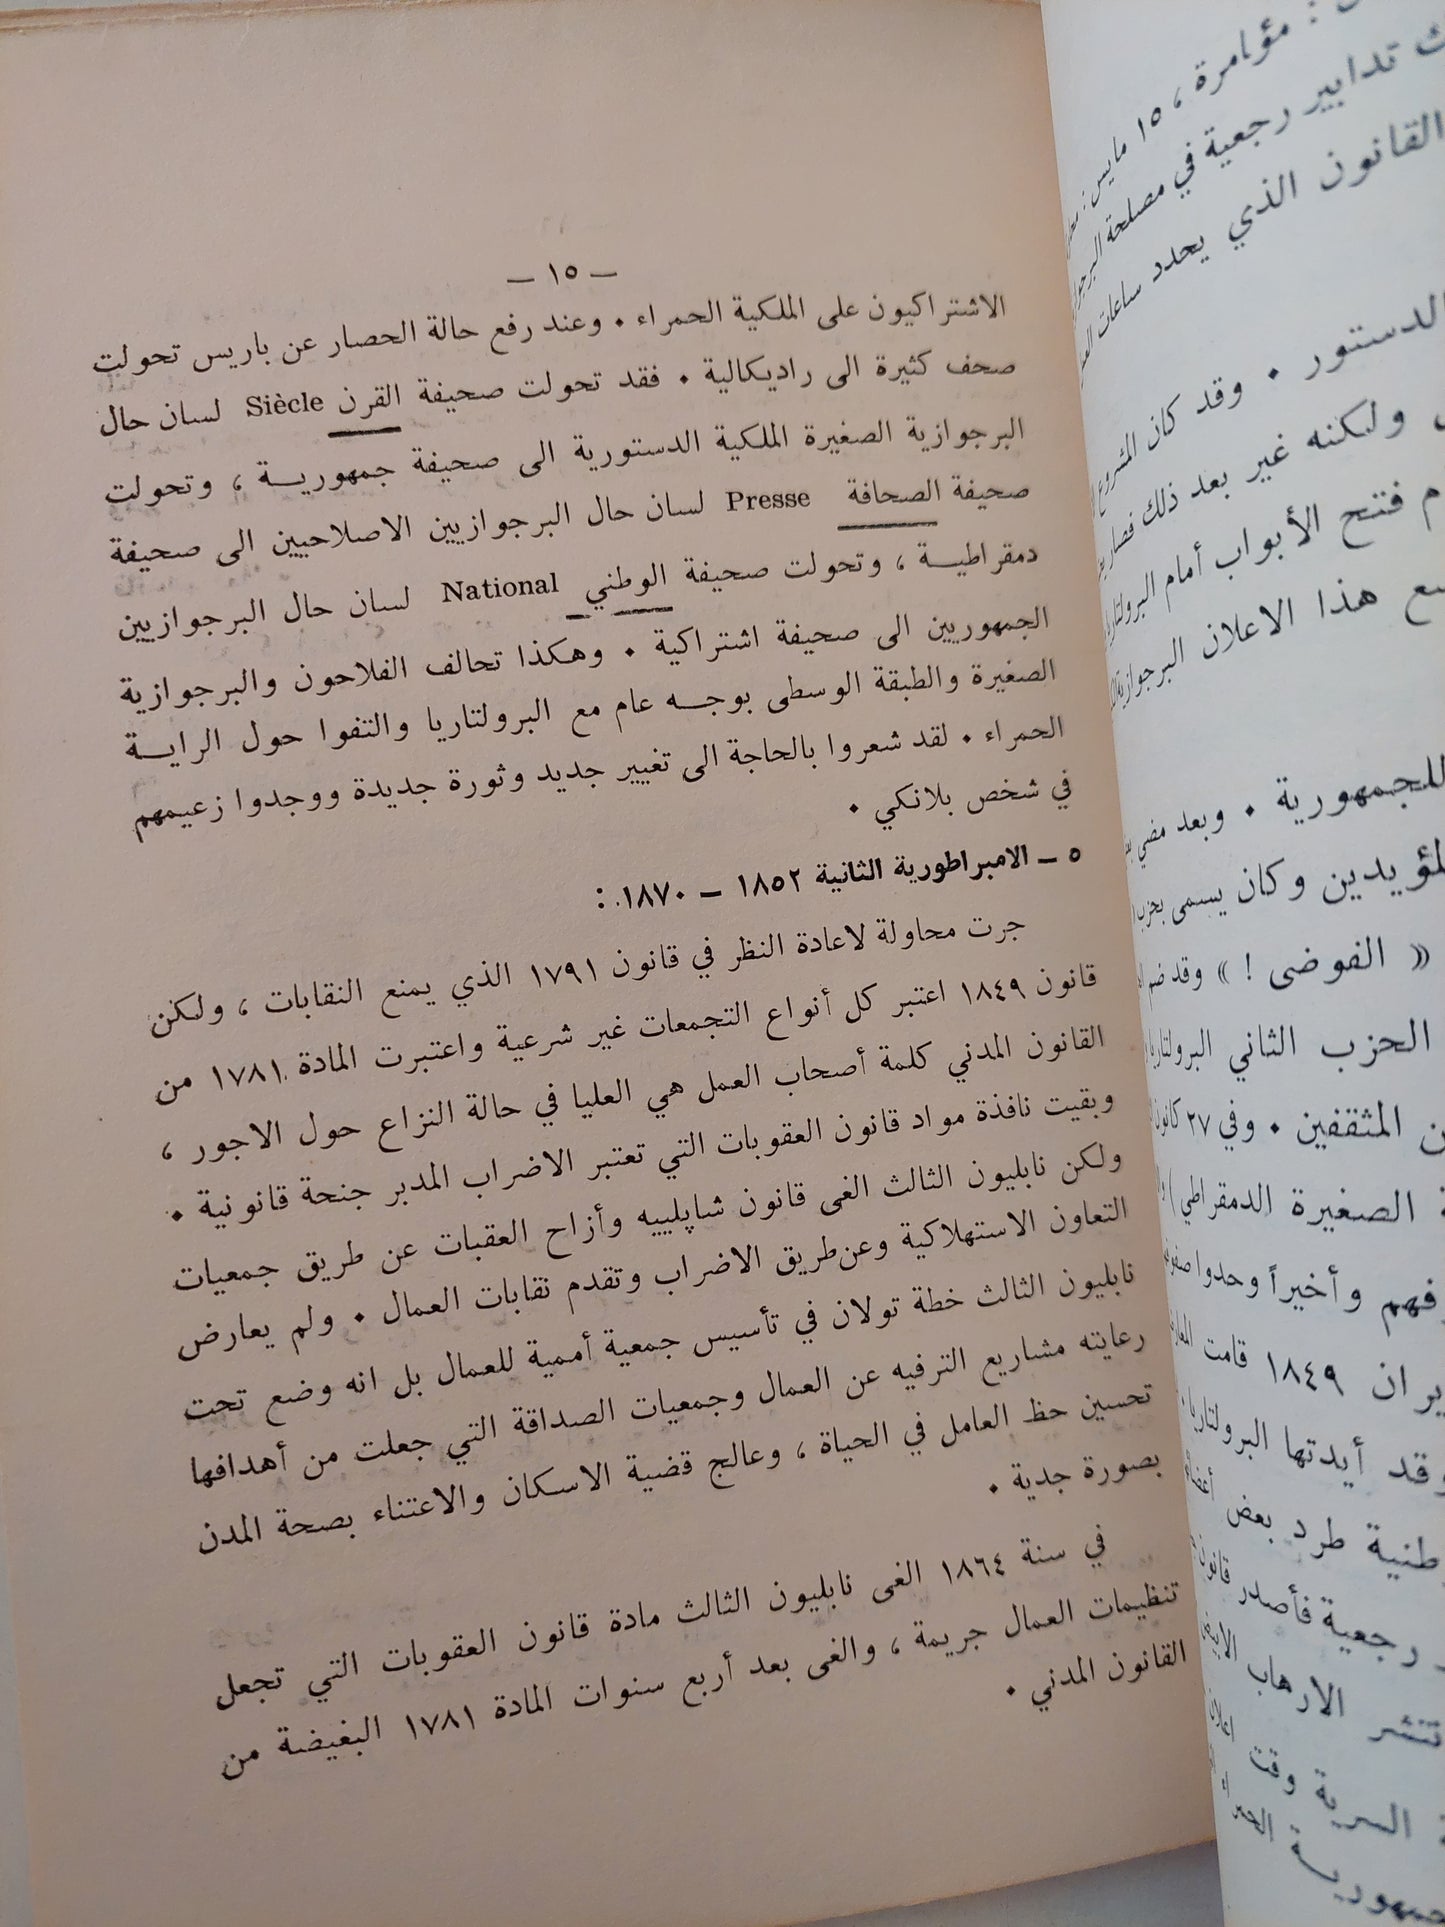 — ١٥ —
الاشتراكيون على الملكية الحمراء . وعند رفع حالة الحصار عن باريس تحولت
صحف كثيرة الى راديكالية . فقد تحولت صحيفة القرن Siècle لسان حال
البرجوازية الصغيرة الملكية الدستورية الى صحيفة جمهوريـــة ، وتحولت
صحيفة الصحافة Presse لسان حال البرجوازيين الاصلاحيين الى صحيفة
دمقراطيـــة ، وتحولت صحيفة الوطني National لسان حال البرجوازيين
الجمهوريين الى صحيفة اشتراكية . وهكذا تحالف الفلاحون والبرجوازية
الصغيرة والطبقة الوسطى بوجـــه عام مع البرولتاريا والتفوا حول الرايـــة
الحمراء . لقد شعروا بالحاجة الى تغيير جديد وثورة جديدة ووجدوا زعيمهم
في شخص بلانكي .
٥ – الامبراطورية الثانية ١٨٥٢ – ١٨٧٠ :
جرت محاولة لاعادة النظر في قانون ١٧٩١ الذي يمنع النقابات ، ولكن
قانون ١٨٤٩ اعتبر كل أنواع التجمعات غير شرعية واعتبرت المادة ١٧٨١ من
القانون المدني كلمة أصحاب العمل هي العليا في حالة النزاع حول الاجور ،
وبقيت نافذة مواد قانون العقوبات التي تعتبر الاضراب المدبر جنحة قانونية .
ولكن نابليون الثالث الغى قانون شاپلييه وأزاح العقبات عن طريق جمعيات
التعاون الاستهلاكية وعن طريق الاضراب وتقدم نقابات العمال . ولم يعارض
نابليون الثالث خطة تولان في تأسيس جمعية أممية للعمال بل انه وضع تحت
رعايته مشاريع الترفيه عن العمال وجمعيات الصداقة التي جعلت من أهدافها
تحسين حظ العامل في الحياة ، وعالج قضية الاسكان والاعتناء بصحة المدن
بصورة جدية .
في سنة ١٨٦٤ الغى نابليون الثالث مادة قانون العقوبات التي تجعل
تنظيمات العمال جريمة ، والغى بعد أربع سنوات المادة ١٧٨١ البغيضة من
القانون المدني .
: مؤامرة ، ١٥ مايس :
تدابير رجعية في مصلحة
القانون الذي يحدد ساعات
الدستور . وقد كان المشروع
ولكنه غير بعد ذلك
فتح الأبواب أمام
هذا الاعلان البرجوازية
للجمهورية . وبعد مضي
المؤيدين وكان يسمى
« الفوضى ! » وقد ضم
الحزب الثاني
المثقفين . وفي ٢٧
الصغيرة الدمقراطي
وأخيراً وحدوا
١٨٤٩ قامت
وقد أيدتها البرولتاريا
طرد بعض
رجعية فأصدر قانون
تنشر الارهاب
السرية وقت